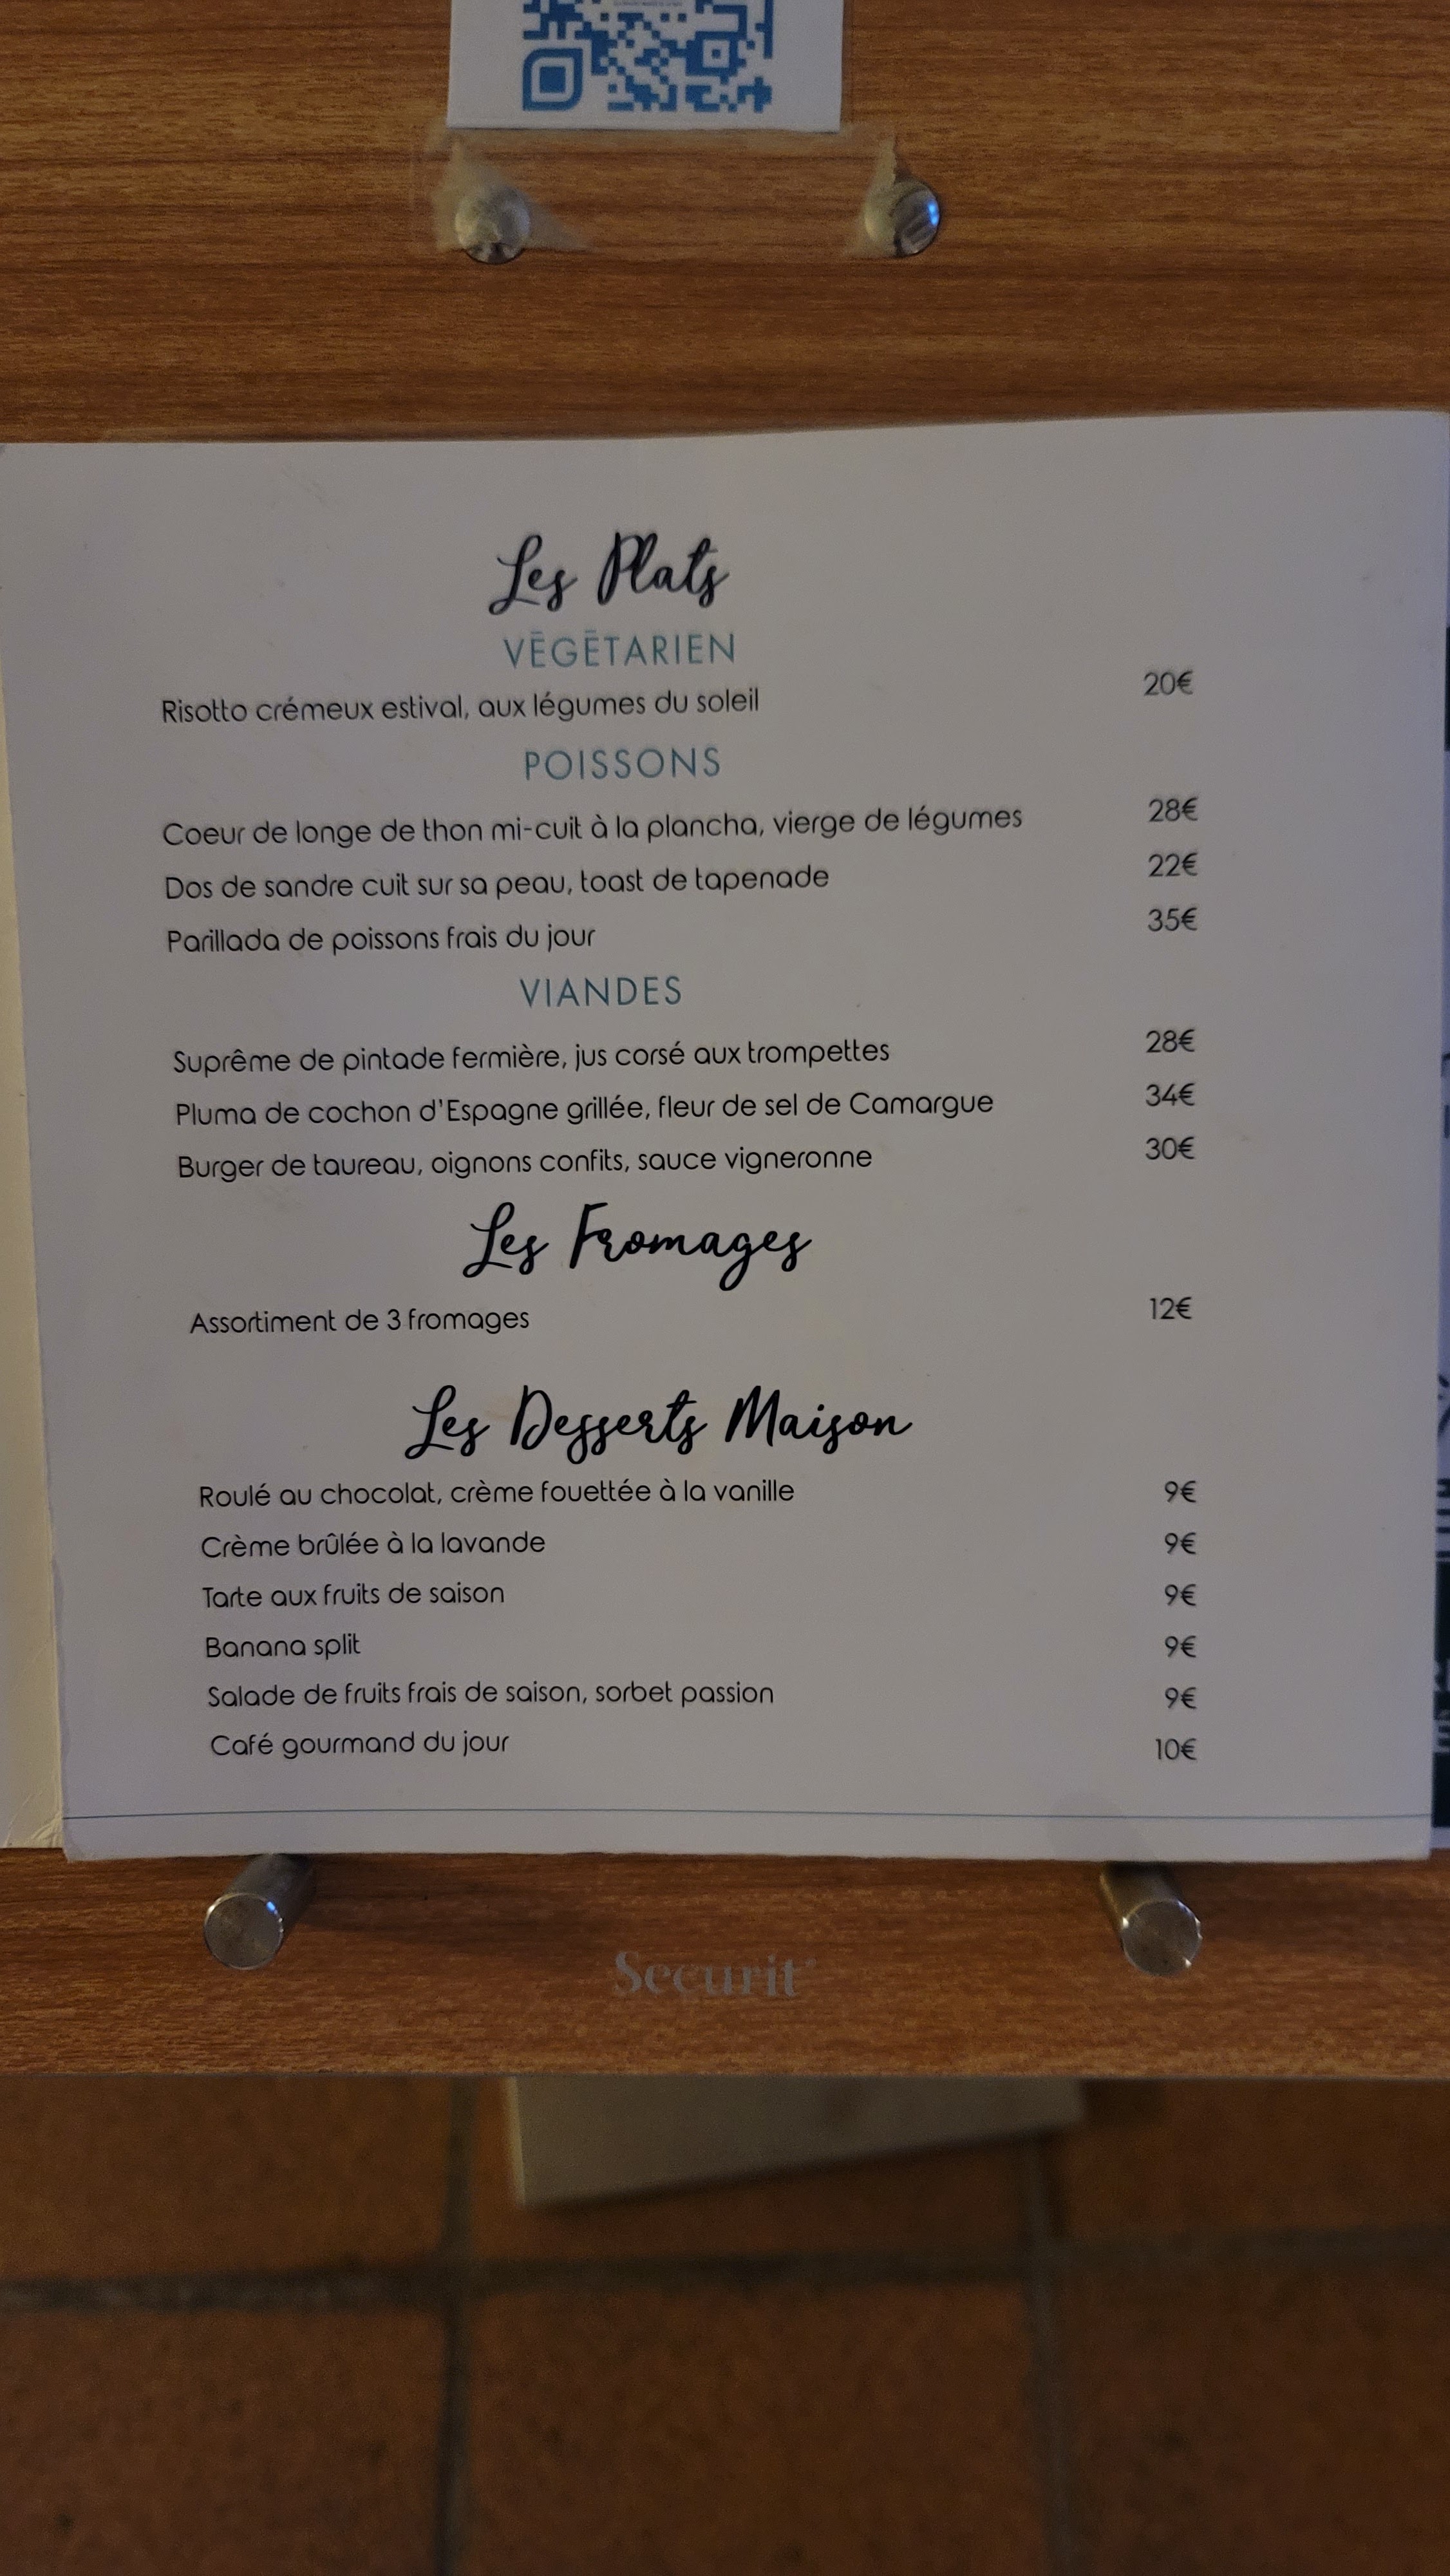 Les Plats
VÉGÉTARIEN
Risotto crémeux estival, aux légumes du soleil 20€
POISSONS
Coeur de longe de thon mi-cuit à la plancha, vierge de légumes 28€
Dos de sandre cuit sur sa peau, toast de tapenade 22€
Parillada de poissons frais du jour 35€
VIANDES
Suprême de pintade fermière, jus corsé aux trompettes 28€
Pluma de cochon d'Espagne grillée, fleur de sel de Camargue 34€
Burger de taureau, oignons confits, sauce vigneronne 30€
Les Fromages
Assortiment de 3 fromages 12€
Les Desserts Maison
Roulé au chocolat, crème fouettée à la vanille 9€
Crème brûlée à la lavande 9€
Tarte aux fruits de saison 9€
Banana split 9€
Salade de fruits frais de saison, sorbet passion 9€
Café gourmand du jour 10€
Securit